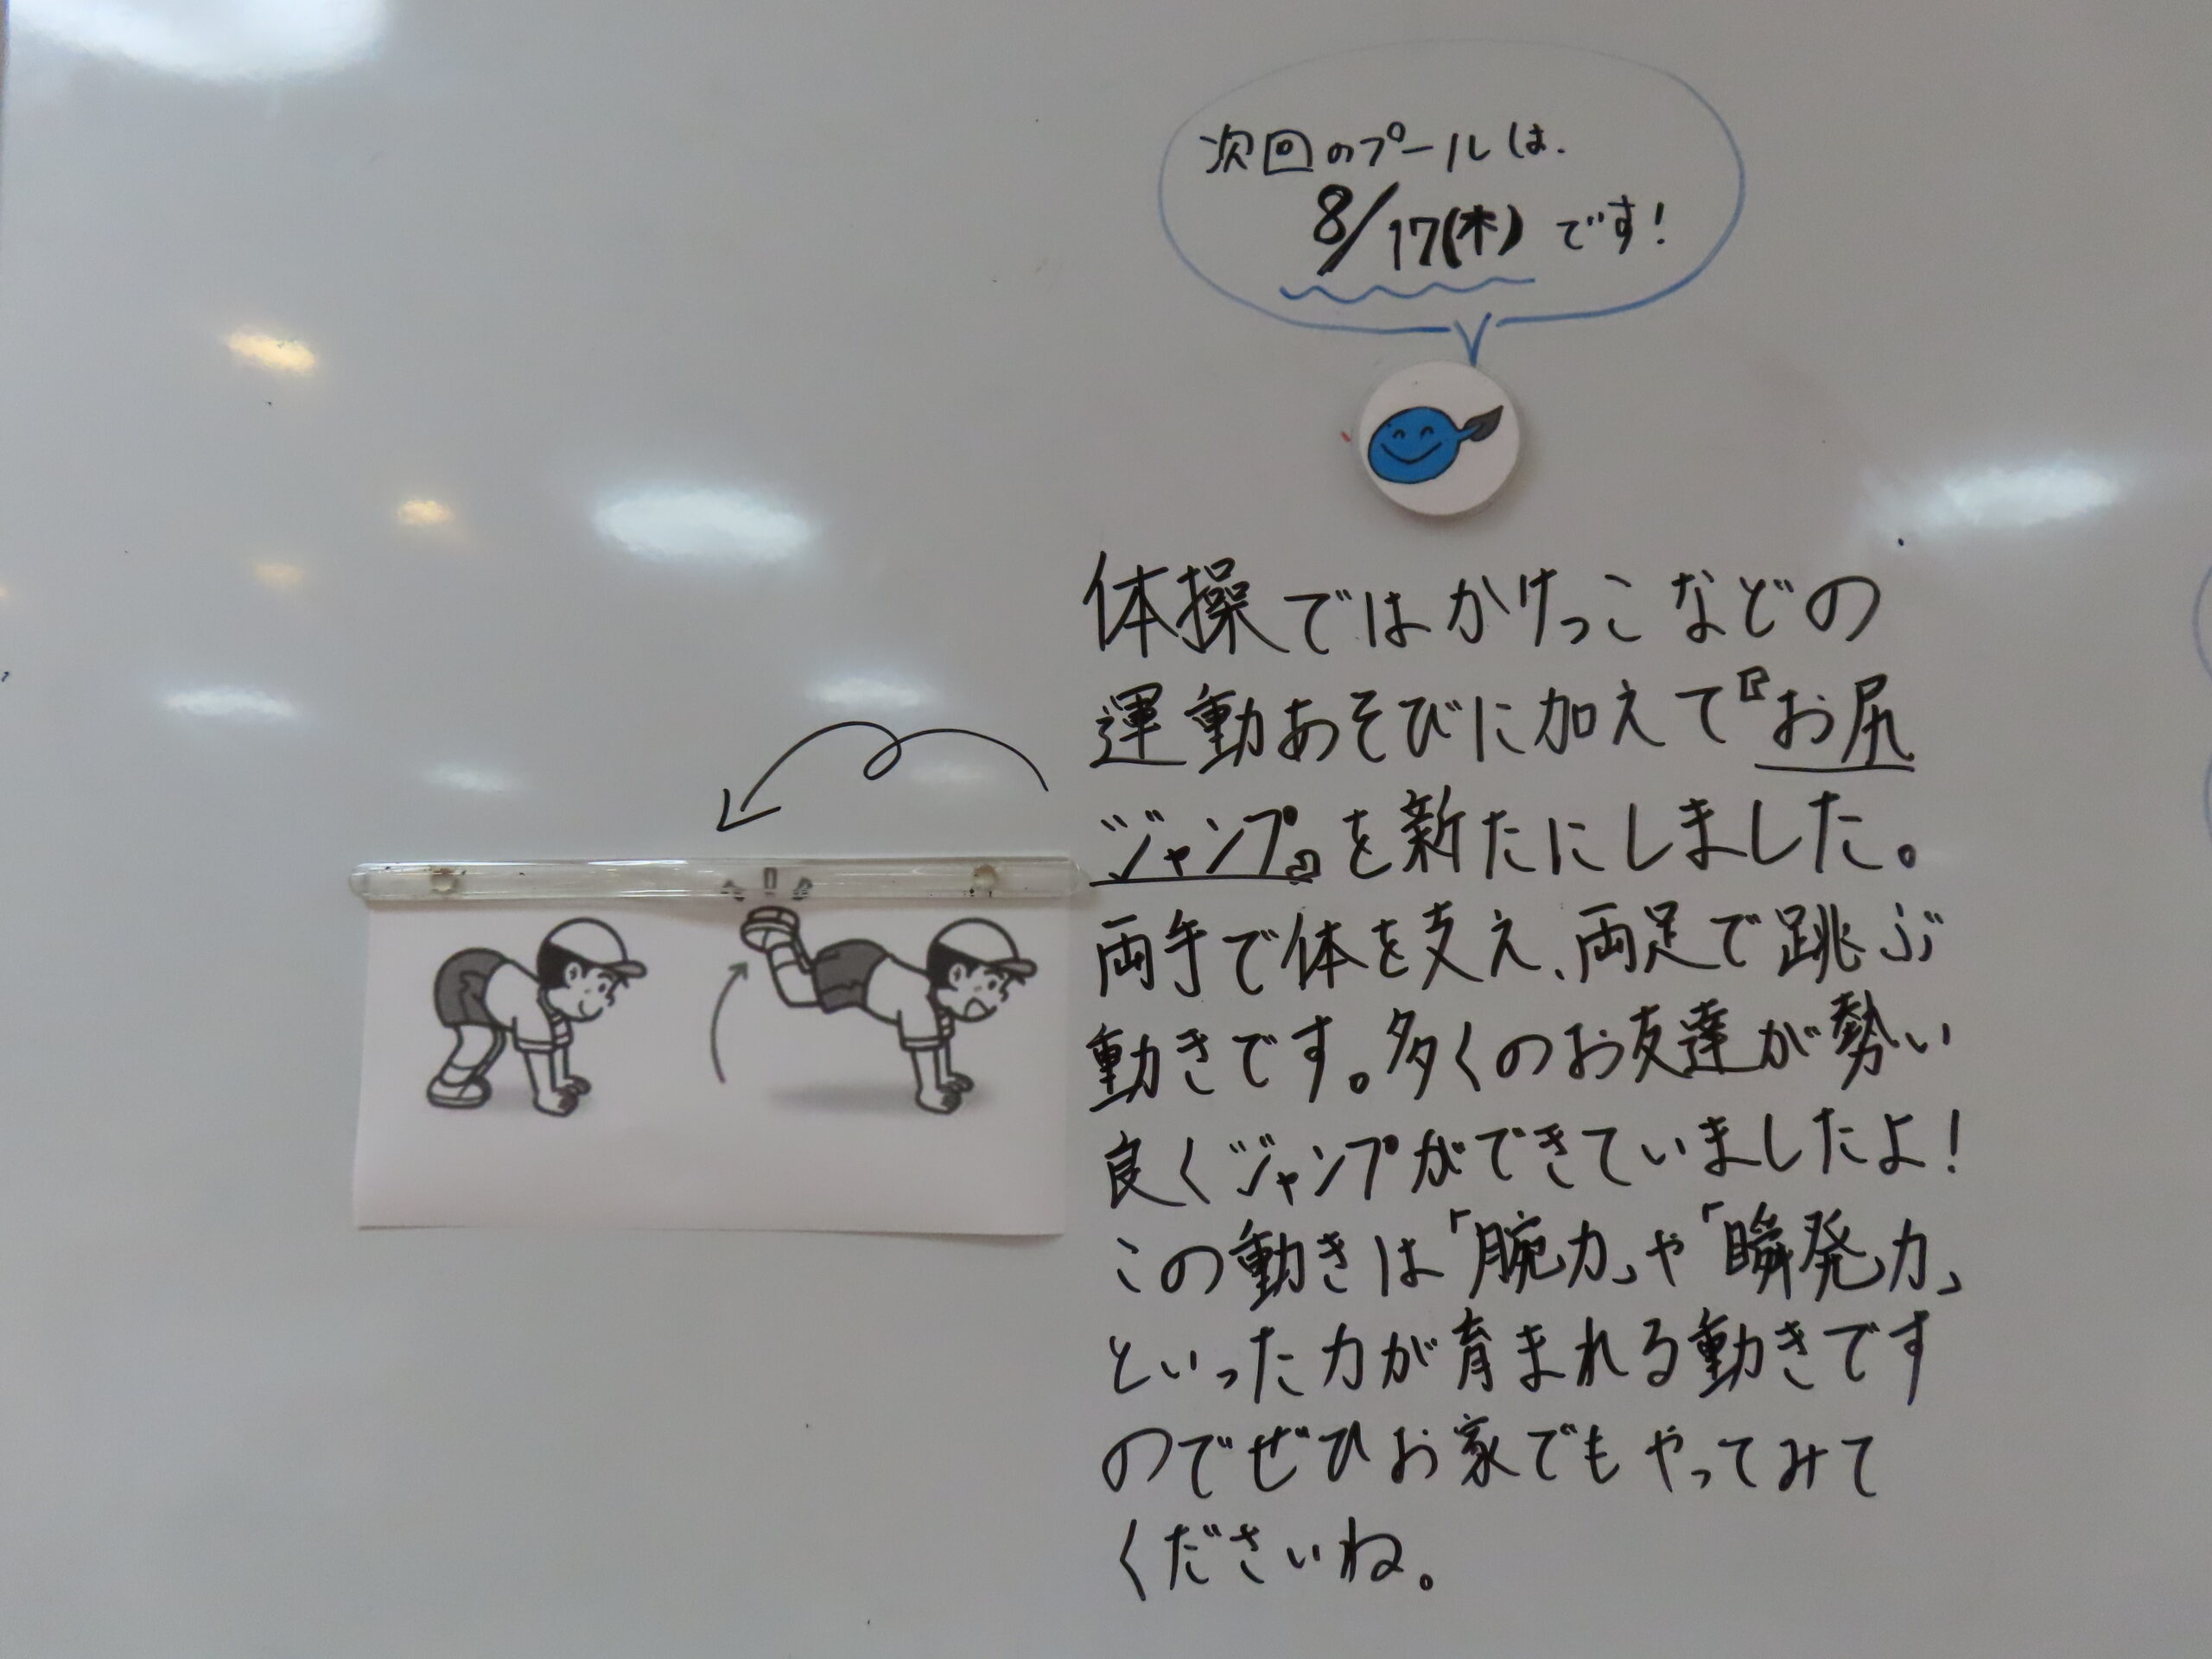 次回のプールは、
8/17(木)です!
体操ではかけっこなどの
運動あそびに加えて『お尻
ジャンプ』を新たにしました。
両手で体を支え、両足で跳ぶ
動きです。多くのお友達が勢い
良くジャンプができていましたよ!
この動きは「腕力」や「瞬発力」
といった力が育まれる動きです
のでぜひお家でもやってみて
くださいね。